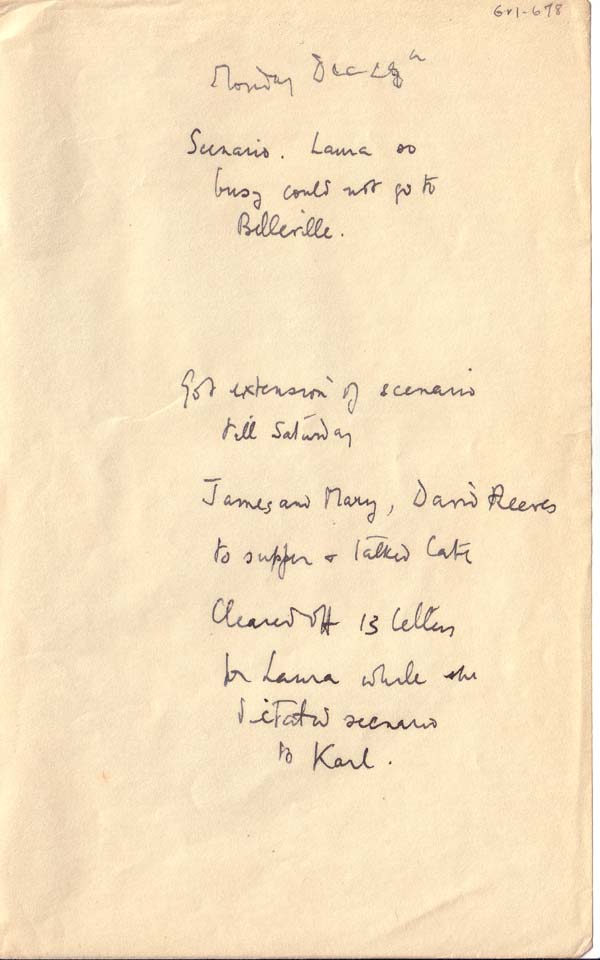 GR1-678
Monday Dec 28th
Scenario. Laura so
busy could not go to
Belleville.
Got extension of scenario
till Saturday
James and Mary, David Reeves
to supper & talked late
Cleared off 13 letters
for Laura while she
dictated scenario
to Karl.